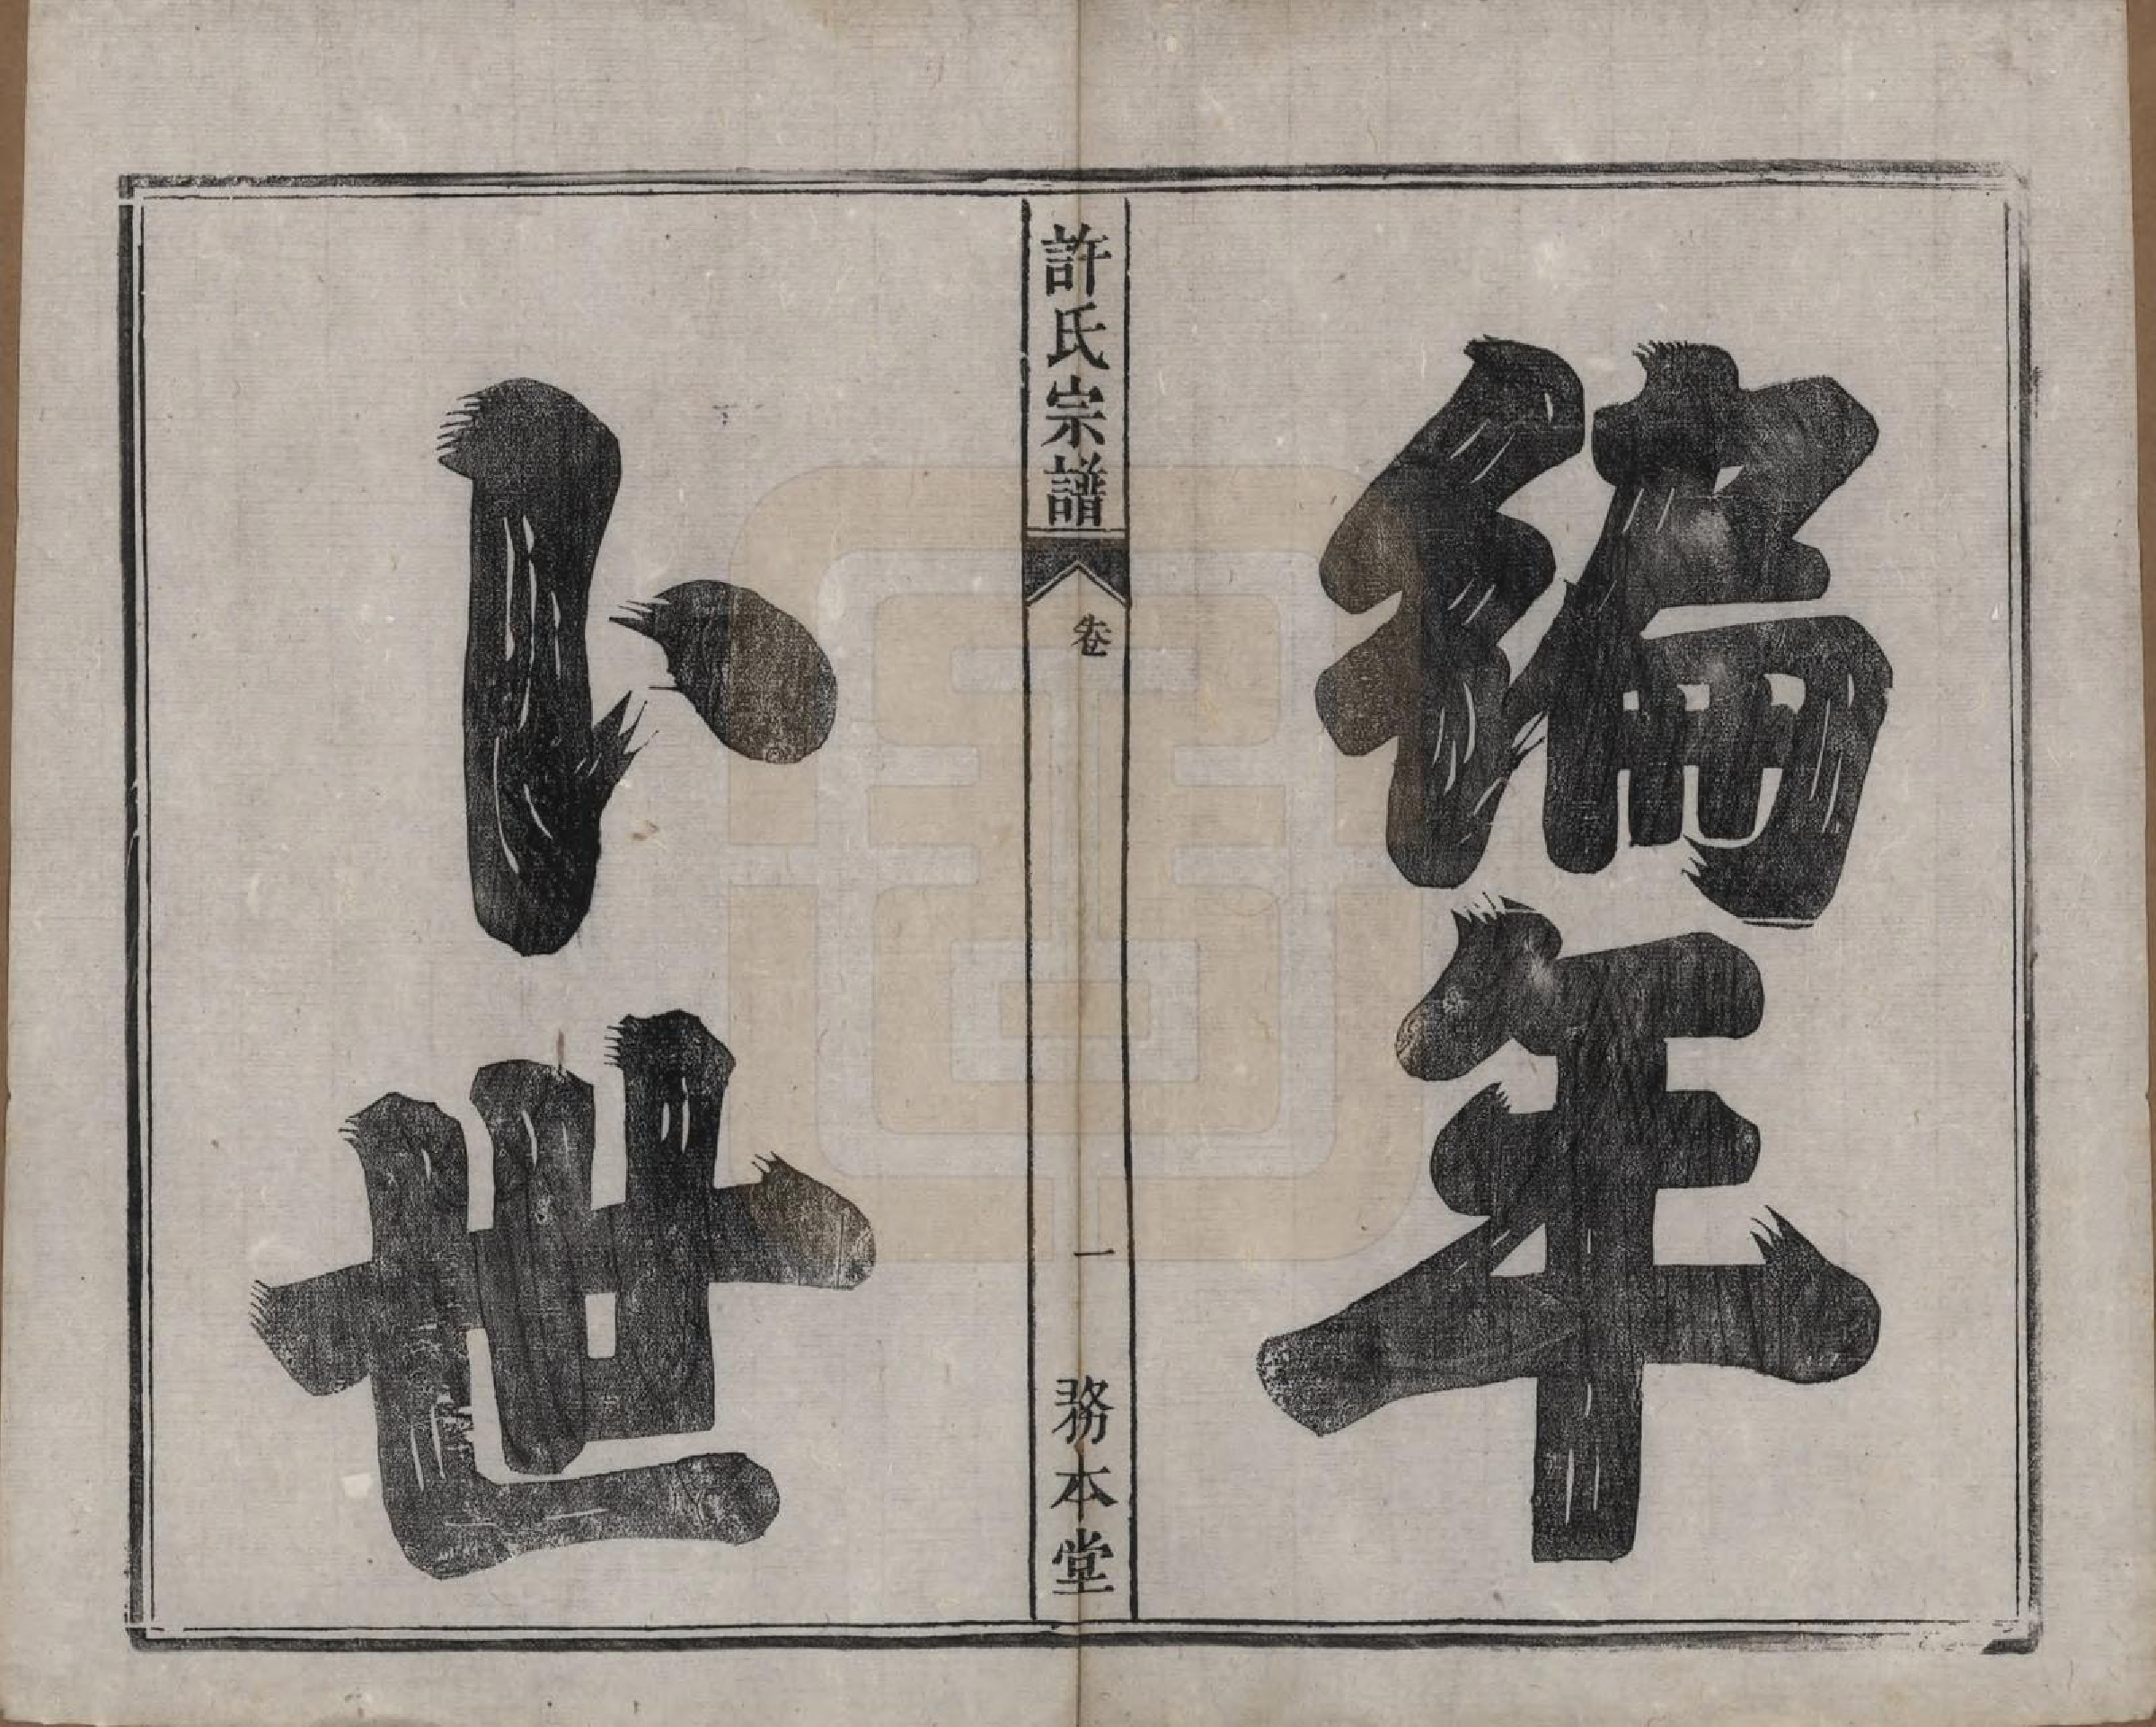 編年
許氏宗譜
卷
一
務本堂
卜世